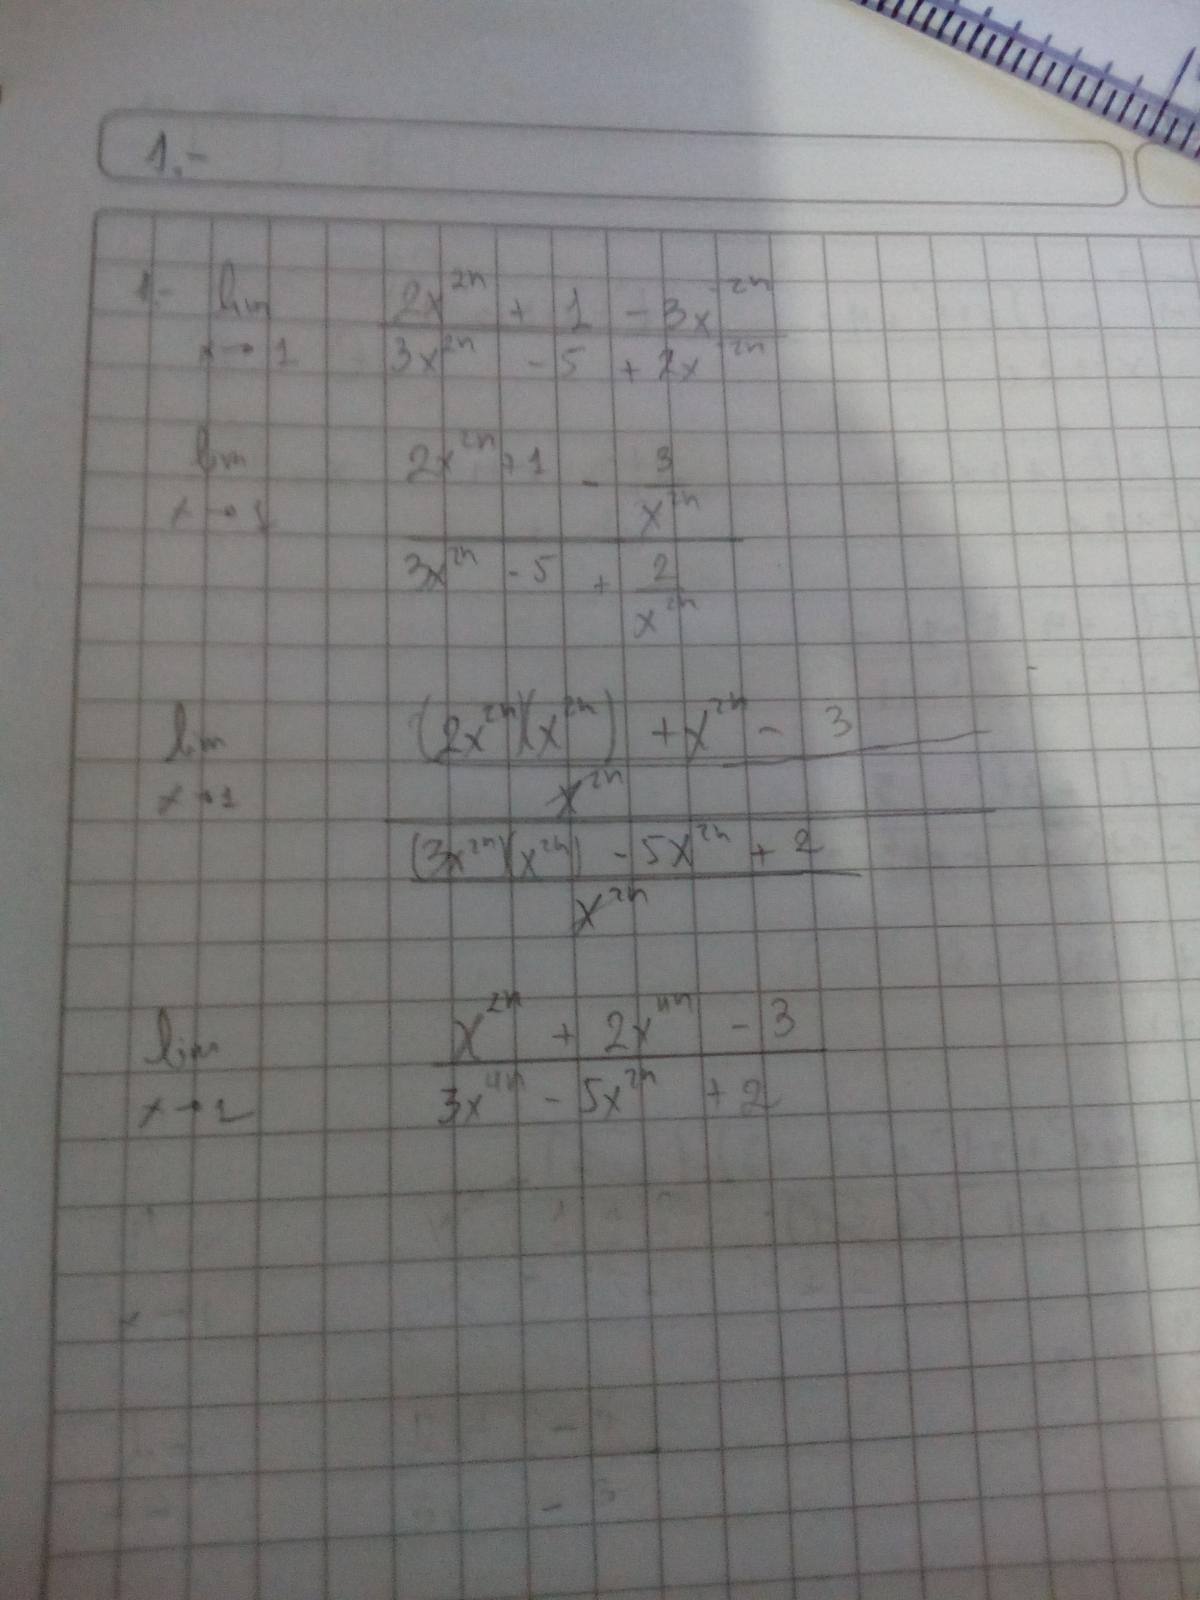 1.-
1.- lim 2x^2n + 1 - 3x^-2n
x→1 3x^2n - 5 + 2x^-2n
lim 2x^2n + 1 - 3/x^2n
x→1 3x^2n - 5 + 2/x^2n
lim (2x^2n)(x^2n) + x^2n - 3
x→1 x^2n
(3x^2n)(x^2n) - 5x^2n + 2
x^2n
lim x^2n + 2x^4n - 3
x→1 3x^4n - 5x^2n + 2